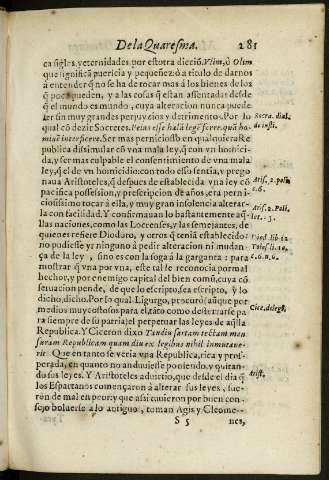 De la Quaresma. 281
ca sigles, y eternidades, por estotra dicció, Vlim, ò Olim
que significà puericia y pequeñez: ò a titulo de darnos
à entender q̃ no se ha de tocar mas à los bienes de los
q̃ poco pueden, y a las cosas q̃ estan asientadas desde
q̃ el mundo es mundo, cuya alteracion nunca puede
ser sin muy grandes perjuyzios y detrimentos. Por lo
qual cõ dezir Socretes.
Socra. dial.
de iusti.
ser mas pernicioso en qualquiera Re
publica dissimular cõ vna mala ley, q̃ con vn homici-
da, y ser mas culpable el consentimiento de vna mala
ley, q̃ el de vn homicidio: con todo esso sentia, y prego
naua Aristoteles, q̃ despues de establecida vna ley cõ
Arist. 2. polit.
c. 6.
pacifica possession, y prescripcion de años, era perni-
ciosissimo tocar à ella, y muy gran insolencia alterar-
la con facilidad. Y confirmauan lo bastantemente aq̃-
Arist. 2. Poli.
llas naciones, como las Locrenses, y las semejantes, de
quienes refiere Diodoro, y otros q̃ tenia establecido
no pudiesse yr ninguno à pedir alteracion ni mudan-
ça de la ley, sino es con la soga à la garganta: para
mostrar q̃ vna por vna, este tal se reconocia por mal
hechor, y por enemigo capital del bien comũ, cuya cõ
seruacion pende, de que lo escripto, sea escripto, y lo
dicho, dicho. Por lo qual Ligurgo, procurò (aunque por
medios muy costosos para el, tãto como desterrarse pa
Cice. de leg.
ra siempre de su patria) el perpetuar las leyes de aq̃lla
Republica. Y Ciceron dixo Tandiu sartam tectam mea
suram Republicam quam diu ex legibus nihil immutaue-
rit: Que en tanto se veria vna Republica, rica y pros-
perada, en quanto no anduuiesse poniendo, y quitan-
do sus leyes. Y Aristoteles aduirtio, que desde el dia q̃
Arist.
los Espartanos començaron à alterar sus leyes, fue-
rõn de mal en peor: y que assi tuuieron por buen con-
sejo boluerse a lo antiguo, toman Agis y Cleome-
S 5 nes,